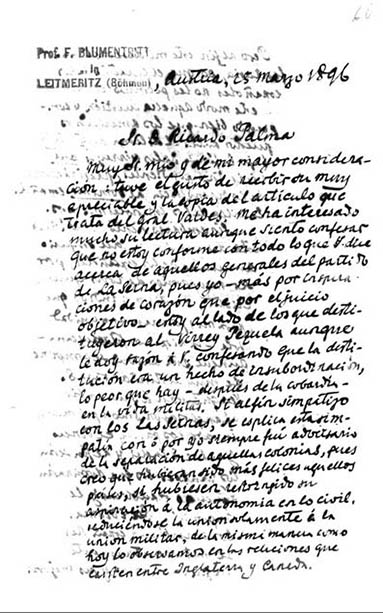 Prof. F. BLUMENTRITT
in
LEITMERITZ (Böhmen)
Austria, 15 marzo 1896
Sr. D. Ricardo Palma
Muy Sr. mio y de mi mayor considera-
ción: tuve el gusto de recibir su muy
apreciable y la copia del articulo que
trata del Gral Valdés. Me ha interesado
mucho su lectura aunque siento confesar
que no estoy conforme con todo lo que V. dice
acerca de aquellos generales del partido
de La Serna, pues yo - más por inspira-
ciones de corazón que por el juicio
objetivo - estoy al lado de los que desti-
tuyeron al Virrey Pezuela aunque
le doy razón á V. confesando que la desti-
tución era un hecho de insubordinación,
lo peor que hay - después de la cobardia -
en la vida militar. Si al fin simpatizo
con los Las Sernas, se explica esta sim-
patia con q por yo siempre fuí adversario
de la separación de aquellas colonias, pues
creo que hubieran sido más felices aquellos
países, si hubiesen restringido su
aspiración á la autonomia en lo civil,
reduciéndose la union solamente á la
union militar, de la misma manera como
hoy lo observamos en las relaciones que
existen entre Inglaterra y Canadá.